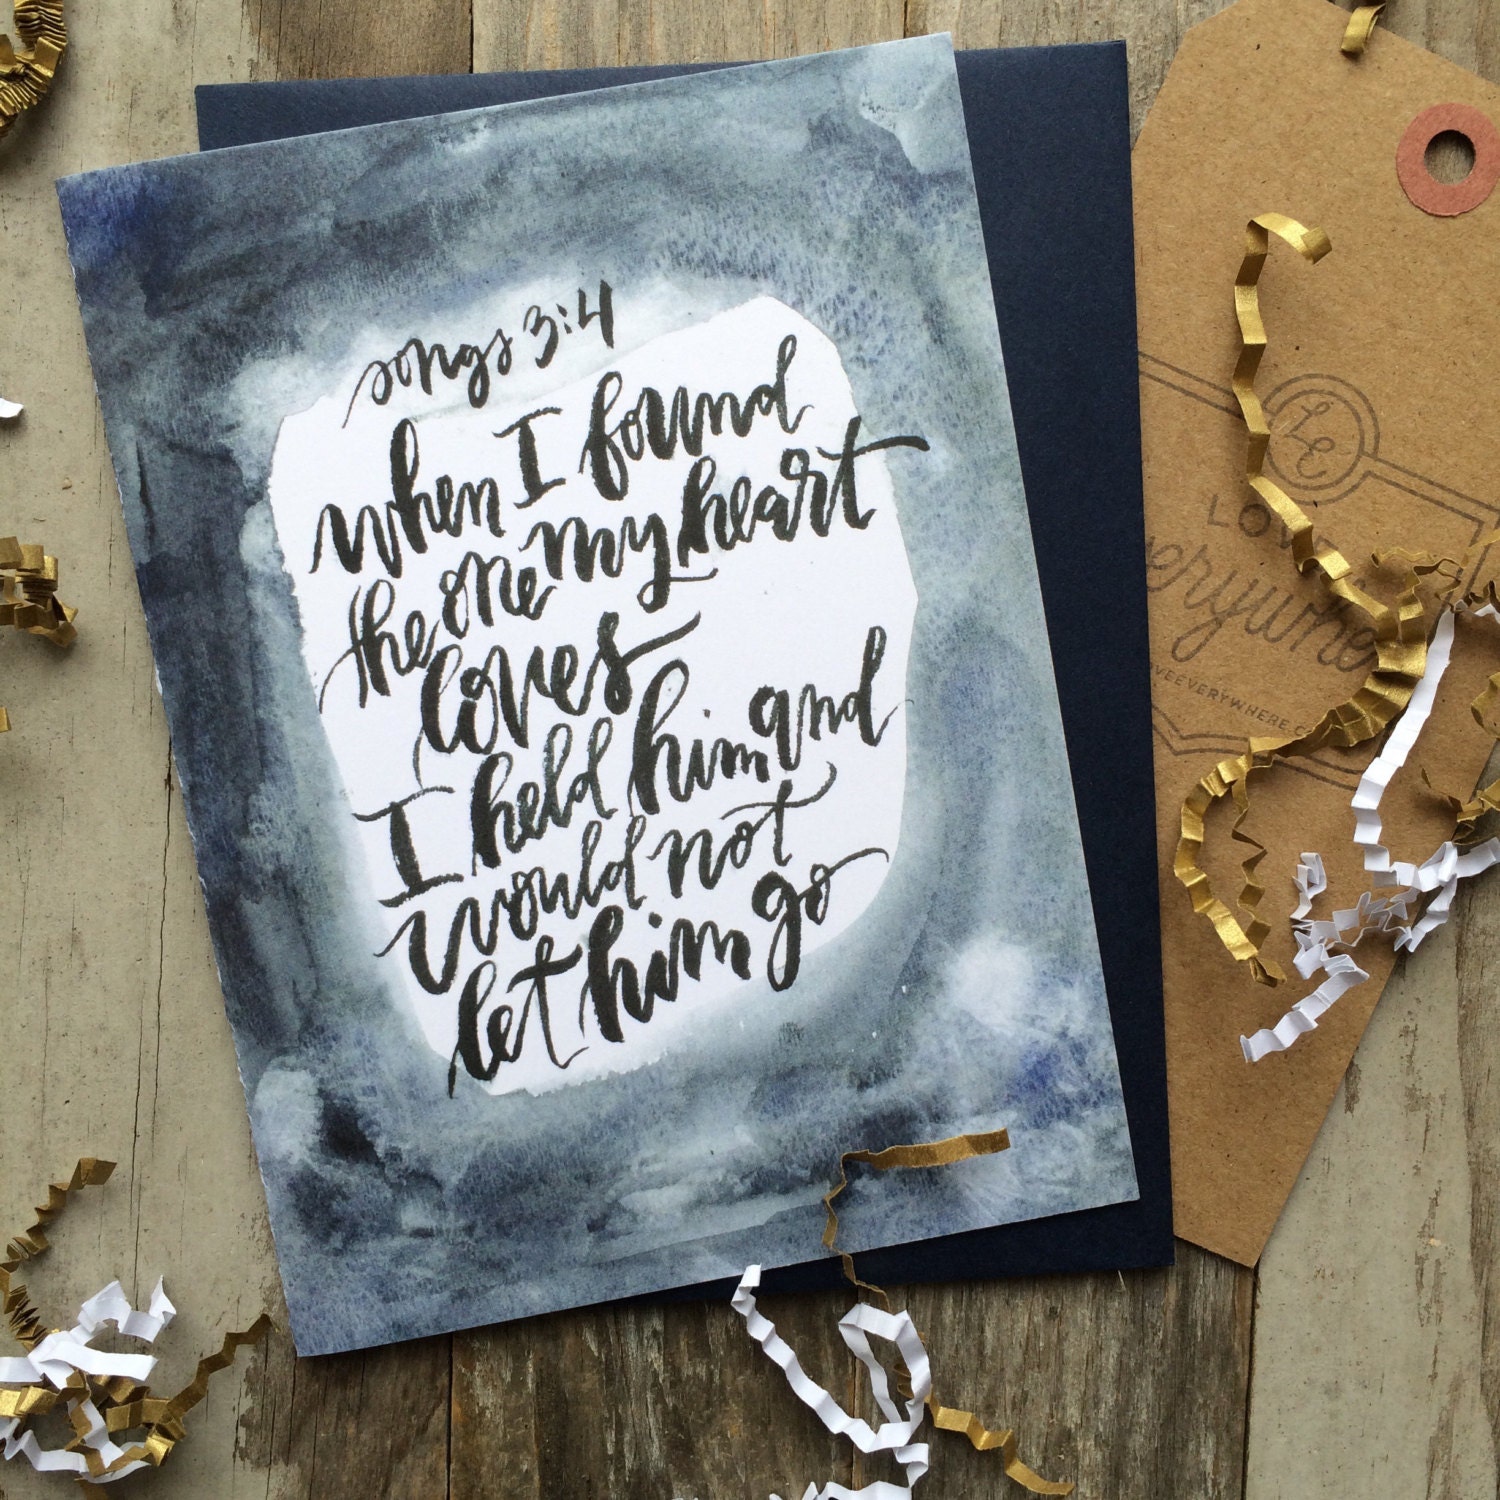 songs 3:4
when I found
the one my heart
loves
I held him and
would not
let him go
LE
LOVE
everywhere